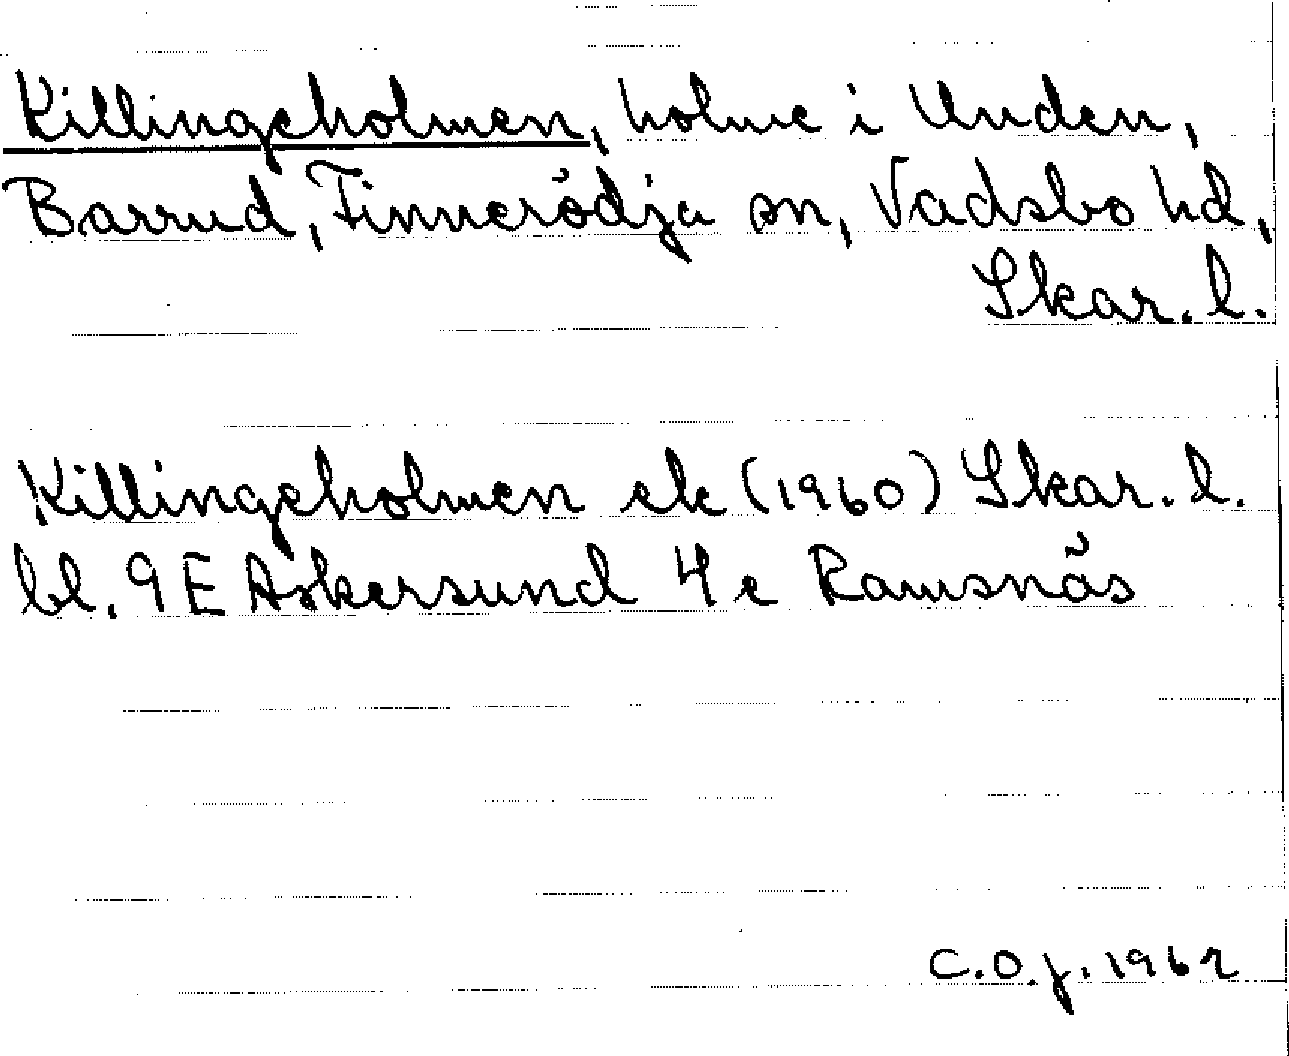 Killingeholmen, holme i Unden,
Barrud, Finnerödja sn, Vadsbo hd,
Skar. l.
Killingeholmen ek (1960) Skar. l.
bl. 9E Askersund 4e Ramsnäs
C.O.j. 1962